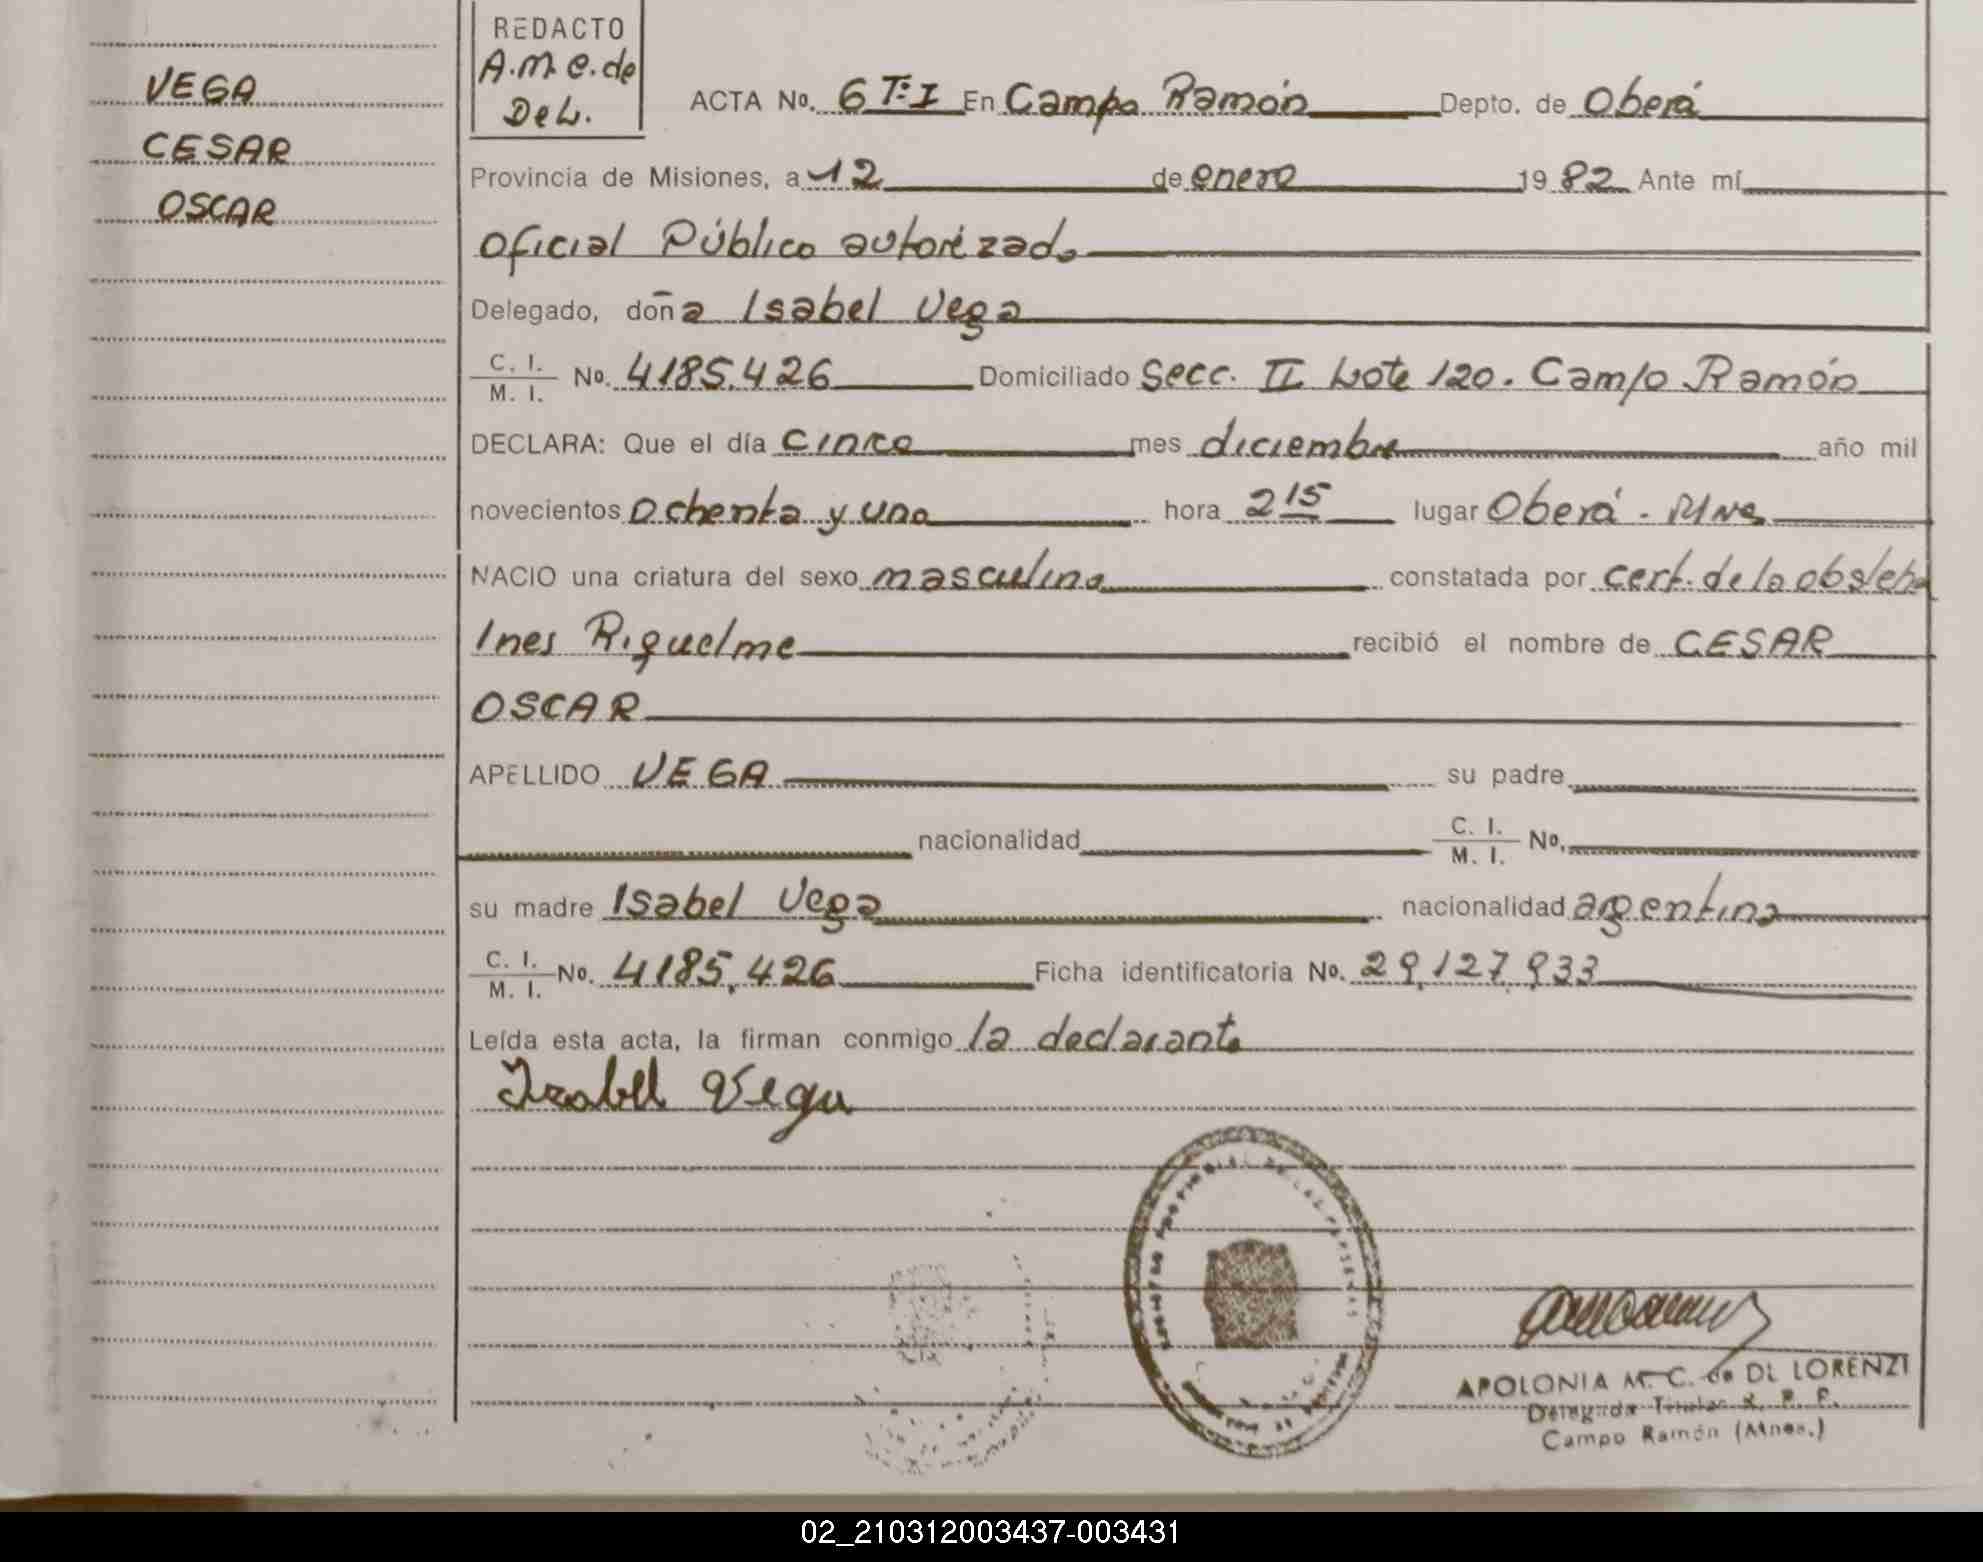 REDACTO
A.M.C. de
De L.
VEGA
CESAR
OSCAR
ACTA No. 6 Tº I En Campo Ramón Depto. de Oberá
Provincia de Misiones, a 12 de enero 1982 Ante mí
Oficial Público autorizado
Delegado, doña Isabel Vega
C. I.
M. I. No. 4185.426 Domiciliado Secc. II Lote 120. Campo Ramón
DECLARA: Que el día cinco mes diciembre año mil
novecientos Ochenta y uno hora 2 15 lugar Oberá - Mnes
NACIO una criatura del sexo masculino constatada por cert. de la obstetra
Ines Riquelme recibió el nombre de CESAR
OSCAR
APELLIDO VEGA su padre
nacionalidad C. I.
M. I. No.
su madre Isabel Vega nacionalidad argentina
C. I.
M. I. No. 4185.426 Ficha identificatoria No. 29.127.933
Leída esta acta, la firman conmigo la declarante
Izabel Vega
APOLONIA M. C. de DE LORENZI
Delegada Titular R. P. P.
Campo Ramón (Mnes.)
02_210312003437-003431